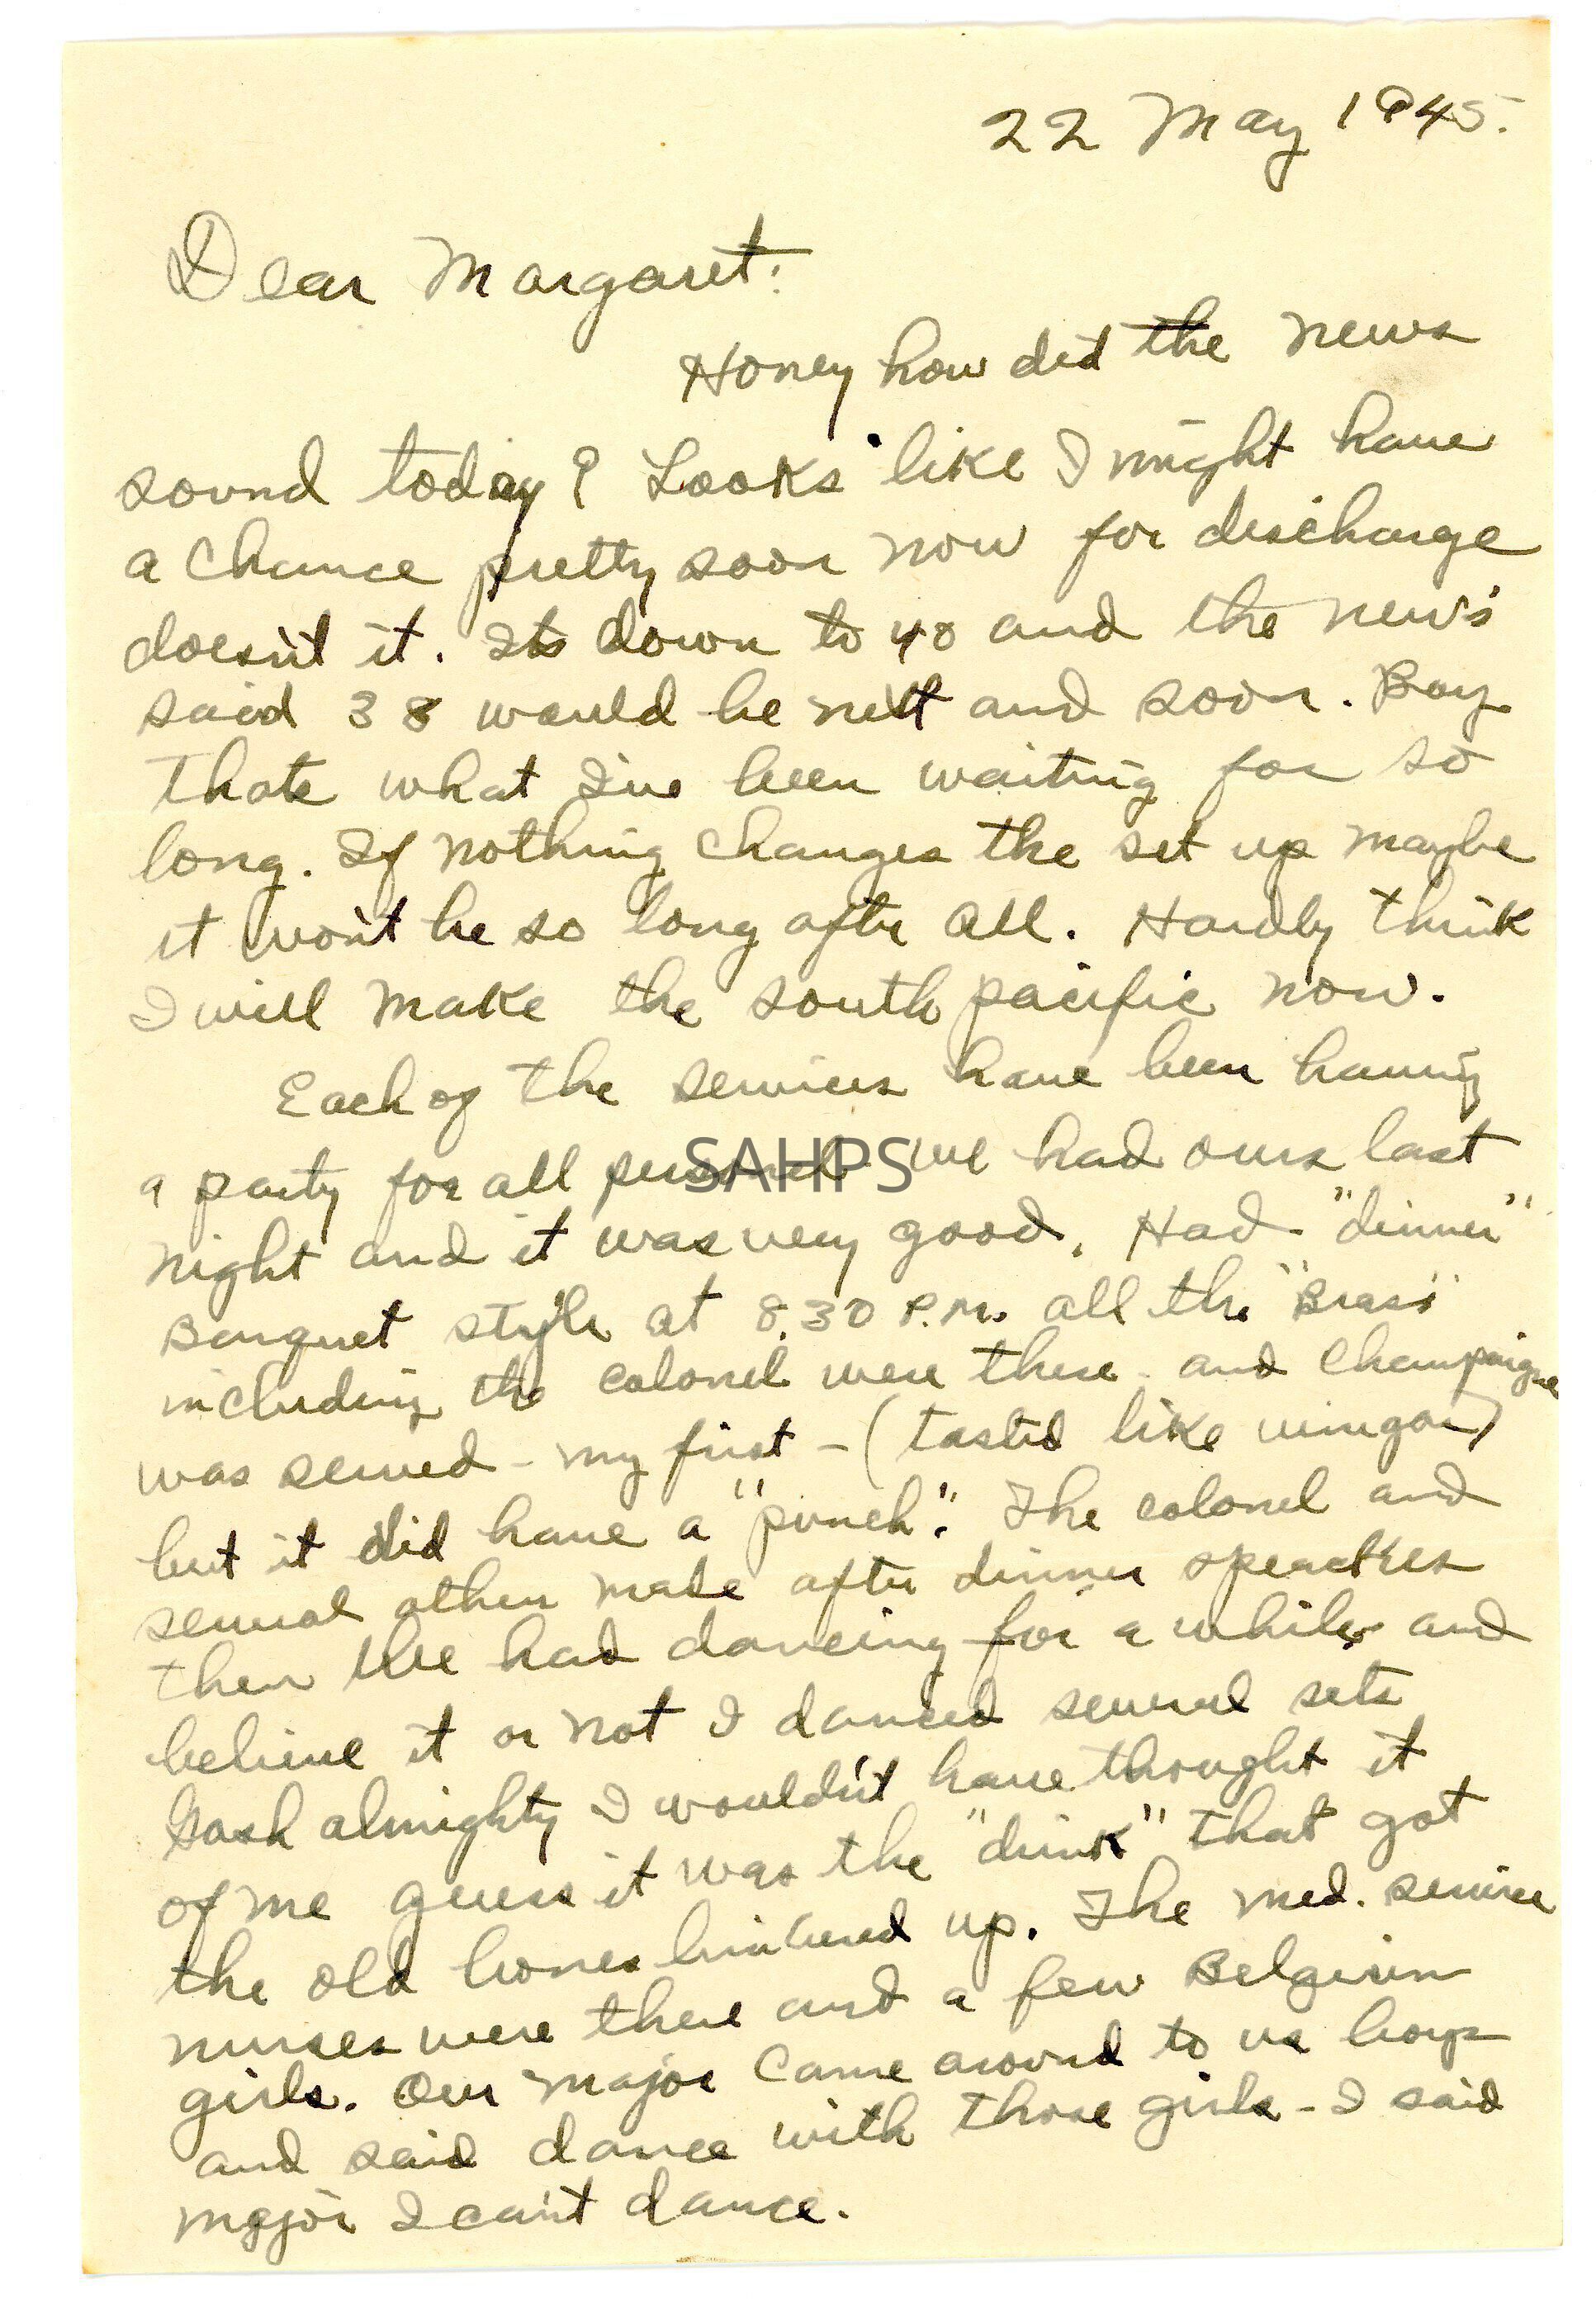 22 May 1945.
Dear Margaret:
Honey how did the news
sound today? Looks like I might have
a chance pretty soon now for discharge
doesn't it. Its down to 40 and the news
said 38 would be next and soon. Boy
thats what I've been waiting for so
long. If nothing changes the set up maybe
it won't be so long after all. Hardly think
I will make the South pacific now.
Each of the services have been having
a party for all personnel we had ours last
night and it was very good. Had "dinner"
Banquet style at 8.30 P.M. all the "Brass"
including the colonel were there - and Champaigne
was served - my first - (tasted like vinegar)
but it did have a "punch". The colonel and
several others made after dinner speaches
then We had dancing for a while and
believe it or not I danced several sets
Gosh almighty I wouldn't have thought it
of me guess it was the "drink" that got
the old bones limbered up. The med. service
nurses were there and a few Belgium
girls. Our Major came around to us boys
and said dance with those girls - I said
major I can't dance.
SAHPS